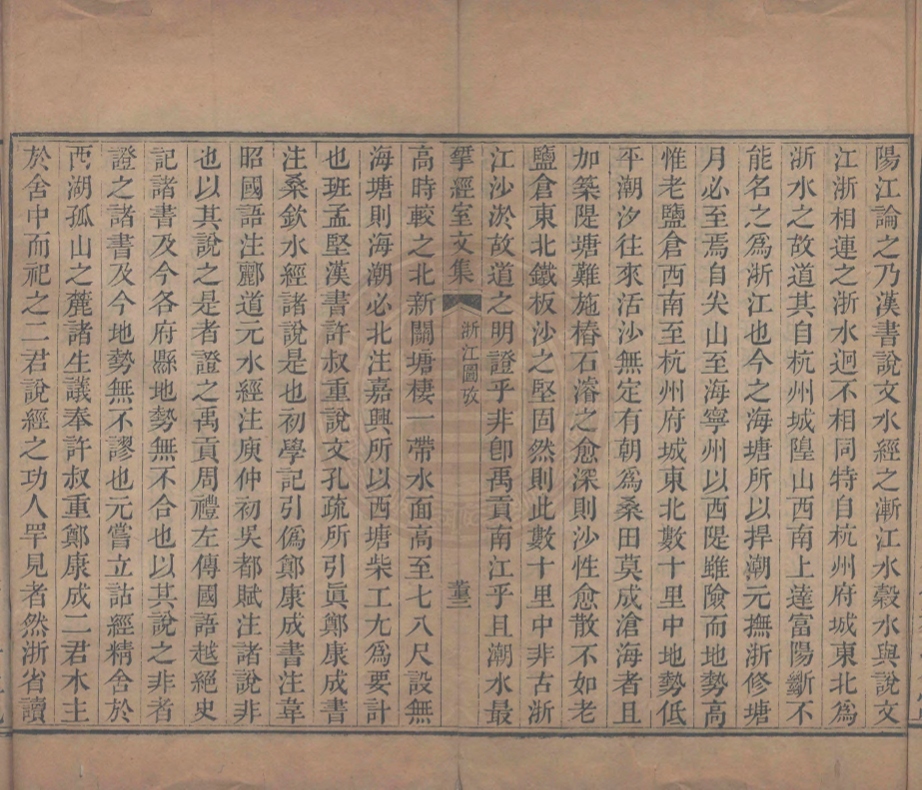 陽江論之乃漢書說文水經之漸江水穀水與說文
江浙相連之浙水迥不相同特自杭州府城東北爲
浙水之故道其自杭州城隍山西南上達富陽斷不
能名之爲浙江也今之海塘所以捍潮元撫浙修塘
月必至焉自尖山至海寧州以西隄雖險而地勢高
惟老鹽倉西南至杭州府城東北數十里中地勢低
平潮汐往來活沙無定有朝爲桑田莫成滄海者且
加築隄塘難施樁石濬之愈深則沙性愈散不如老
鹽倉東北鐵板沙之堅固然則此數十里中非古浙
江沙淤故道之明證乎非卽禹貢南江乎且潮水最
揅經室文集
浙江圖攷
高時較之北新關塘棲一帶水面高至七八尺設無
海塘則海潮必北注嘉興所以西塘柴工尢爲要計
也班孟堅漢書許叔重說文孔疏所引眞鄭康成書
注桑欽水經諸說是也初學記引僞鄭康成書注韋
昭國語注酈道元水經注庾仲初吳都賦注諸說非
也以其說之是者證之禹貢周禮左傳國語越絕史
記諸書及今各府縣地勢無不合也以其說之非者
證之諸書及今地勢無不謬也元嘗立詁經精舍於
西湖孤山之麓諸生議奉許叔重鄭康成二君木主
於舍中而祀之二君說經之功人罕見者然浙省讀